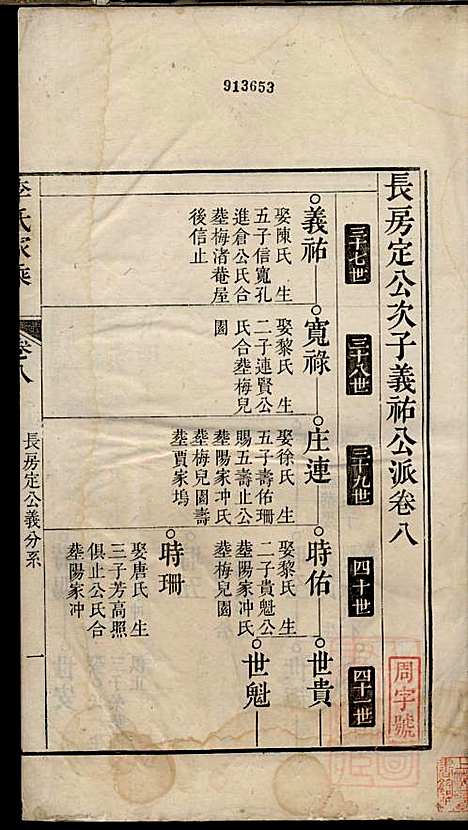 913653
長房定公次子義祐公派卷八
周字號
三十七世
三十八世
三十九世
四十世
四十一世
義祐
娶陳氏 生
五子信寬孔
進倉公氏合
塟梅渚菴屋
後信止
寬祿
娶黎氏 生
二子連賢公
氏合塟梅兒
園
庄連
娶徐氏 生
五子壽佑珊
賜五壽止公
塟陽家冲氏
塟梅兒園壽
塟賈家塢
時佑
娶黎氏 生
二子貴魁公
塟陽家冲氏
塟梅兒園
世貴
世魁
時珊
娶唐氏 生
三子芳高照
俱止公氏合
塟陽家冲
氏家乘
卷八
長房定公義分系
一